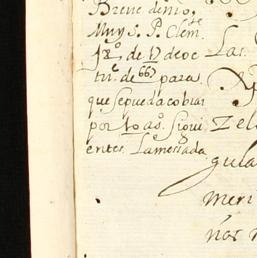 Breve de nro
Muy S. P. Clem.te
18o, de 17 de oc
tu.e de 667 para
que se pueda cobrar
por 10 as. sigui
entes. La mersada
Las
Zel
gula
meri
nos